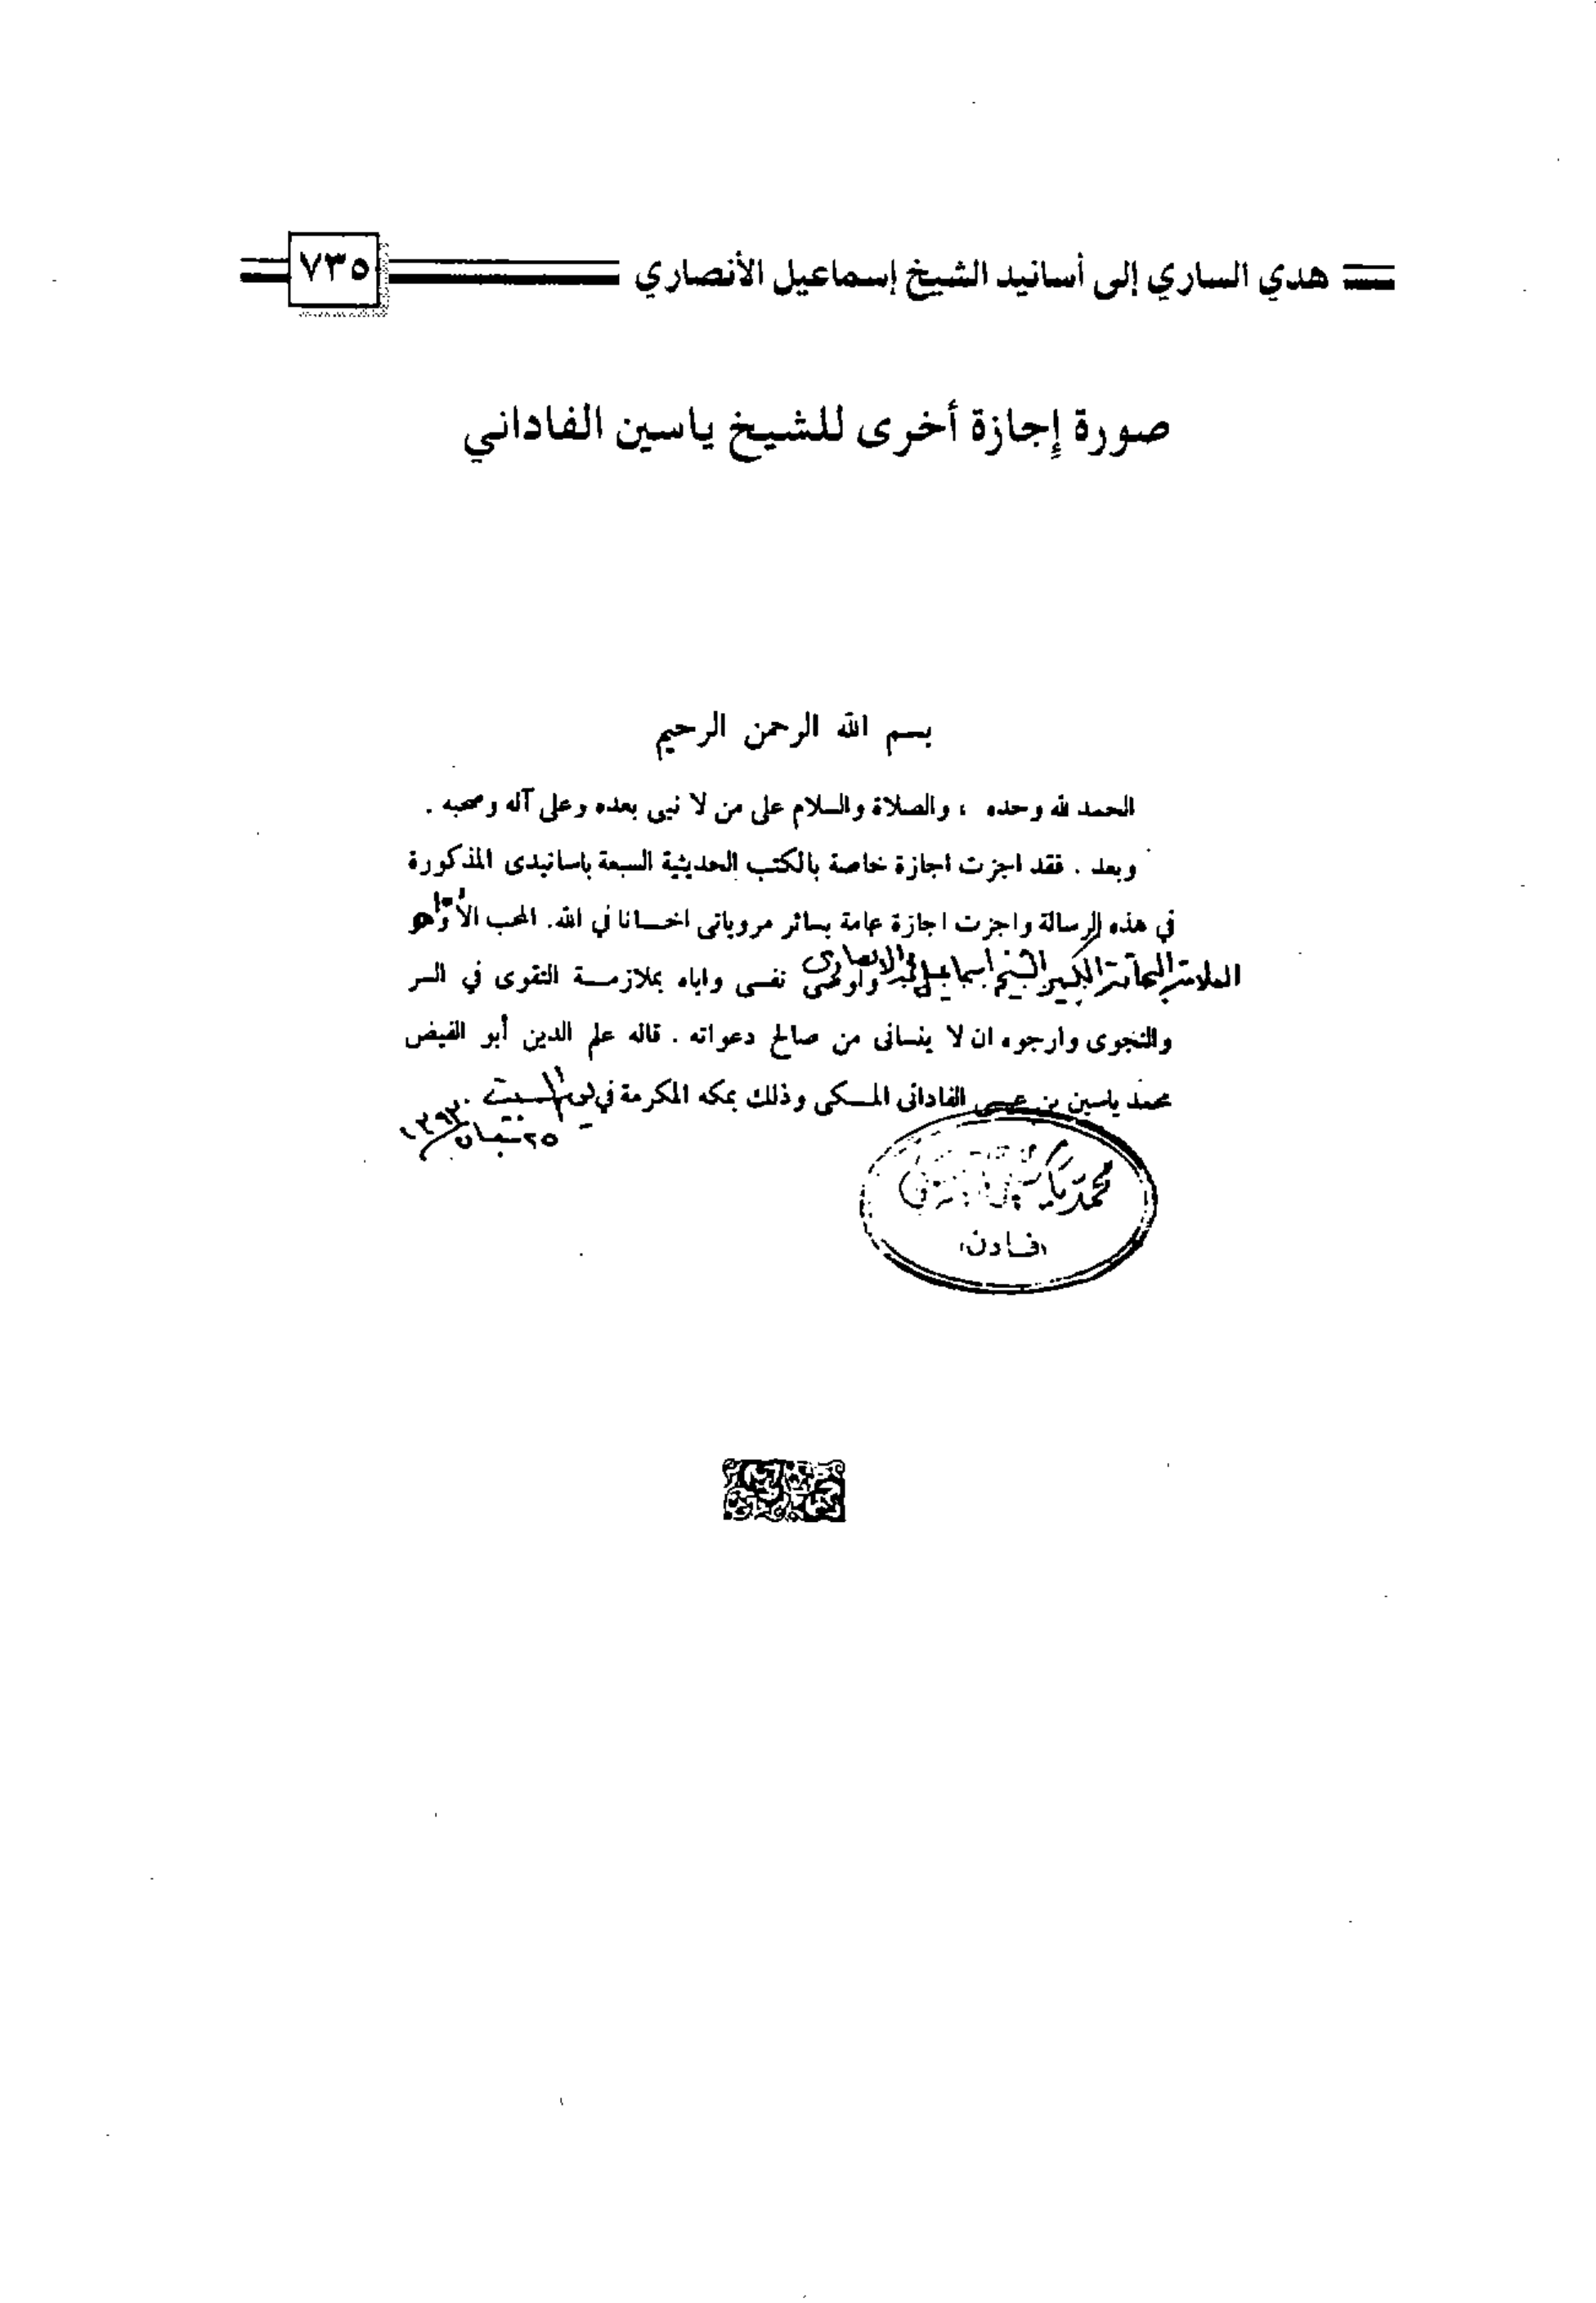 هدي الساري إلى أسانيد الشيخ إسماعيل الأنصاري ٧٣٥
صورة إجازة أخرى للشيخ ياسين الفاداني
بسم الله الرحمن الرحيم
الحمد لله وحده ، والصلاة والسلام على من لا نبى بعده وعلى آله وصحبه .
وبعد . فقد اجزت اجازة خاصة بالكتب الحديثية السبعة باسانيدى المذكورة
في هذه الرسالة واجزت اجازة عامة بسائر مروياتى اخانا في الله. المحب الأواه
العلامة البحاثة الكبير الشيخ اسماعيل الانصارى واوصى نفسى واياه بملازمة التقوى في السر
والنجوى وارجوه ان لا ينسانى من صالح دعواته . قاله علم الدين أبو الفيض
محمد ياسين بن عيسى الفادانى المكى وذلك بمكه المكرمة في يوم السبت
٢٥ شعبان
محمد ياسين
فادن